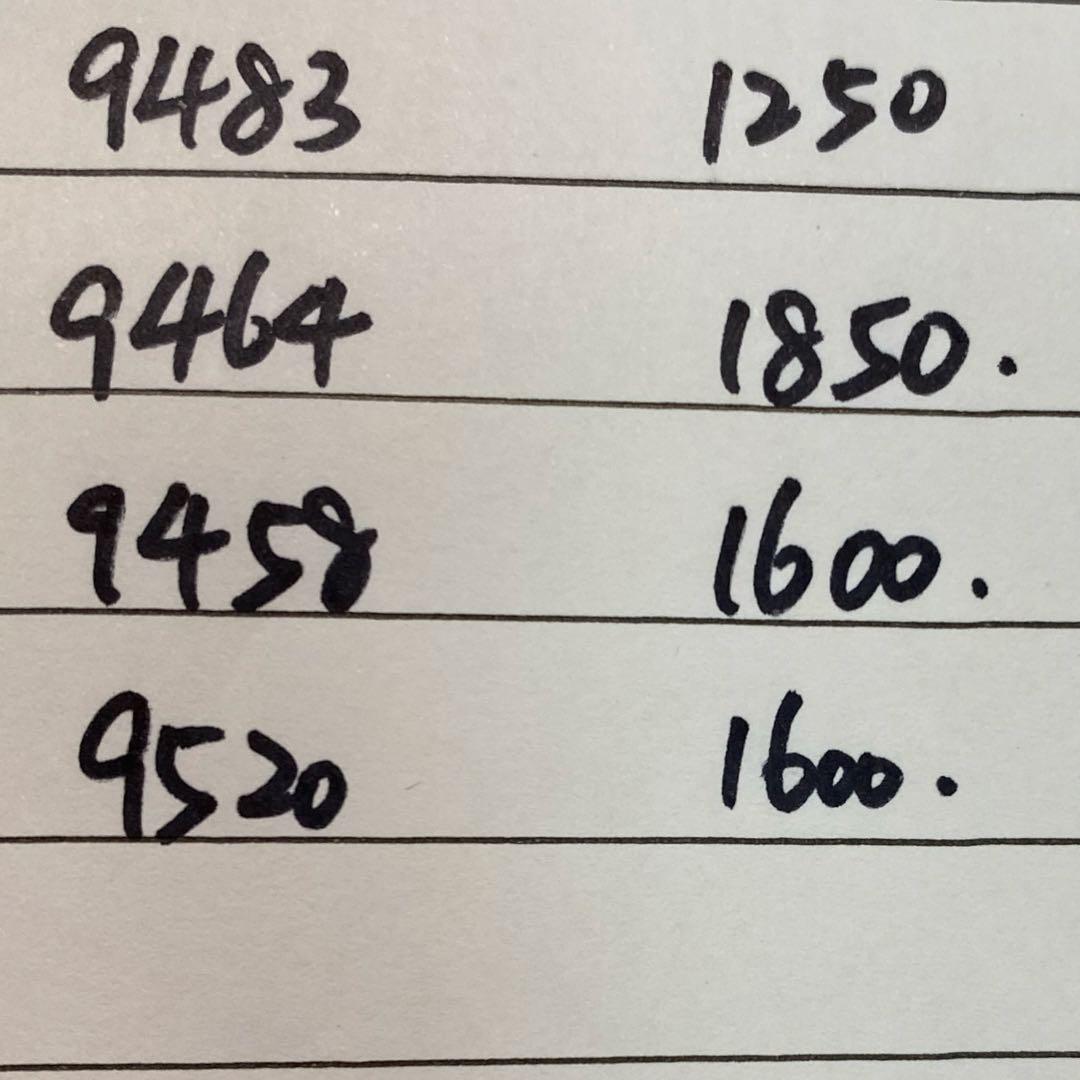 9483 1250
9464 1850.
9458 1600.
9520 1600.